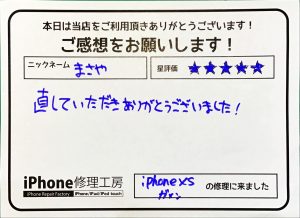 本日は当店をご利用頂きありがとうございます!
ご感想をお願いします!
ニックネーム まさや 星評価 ★★★★★
直していただきありがとうございました!
iPhone修理工房
iPhone Repair Factory iPhone/iPad/iPod touch
iphonexs
ガメン
の修理に来ました